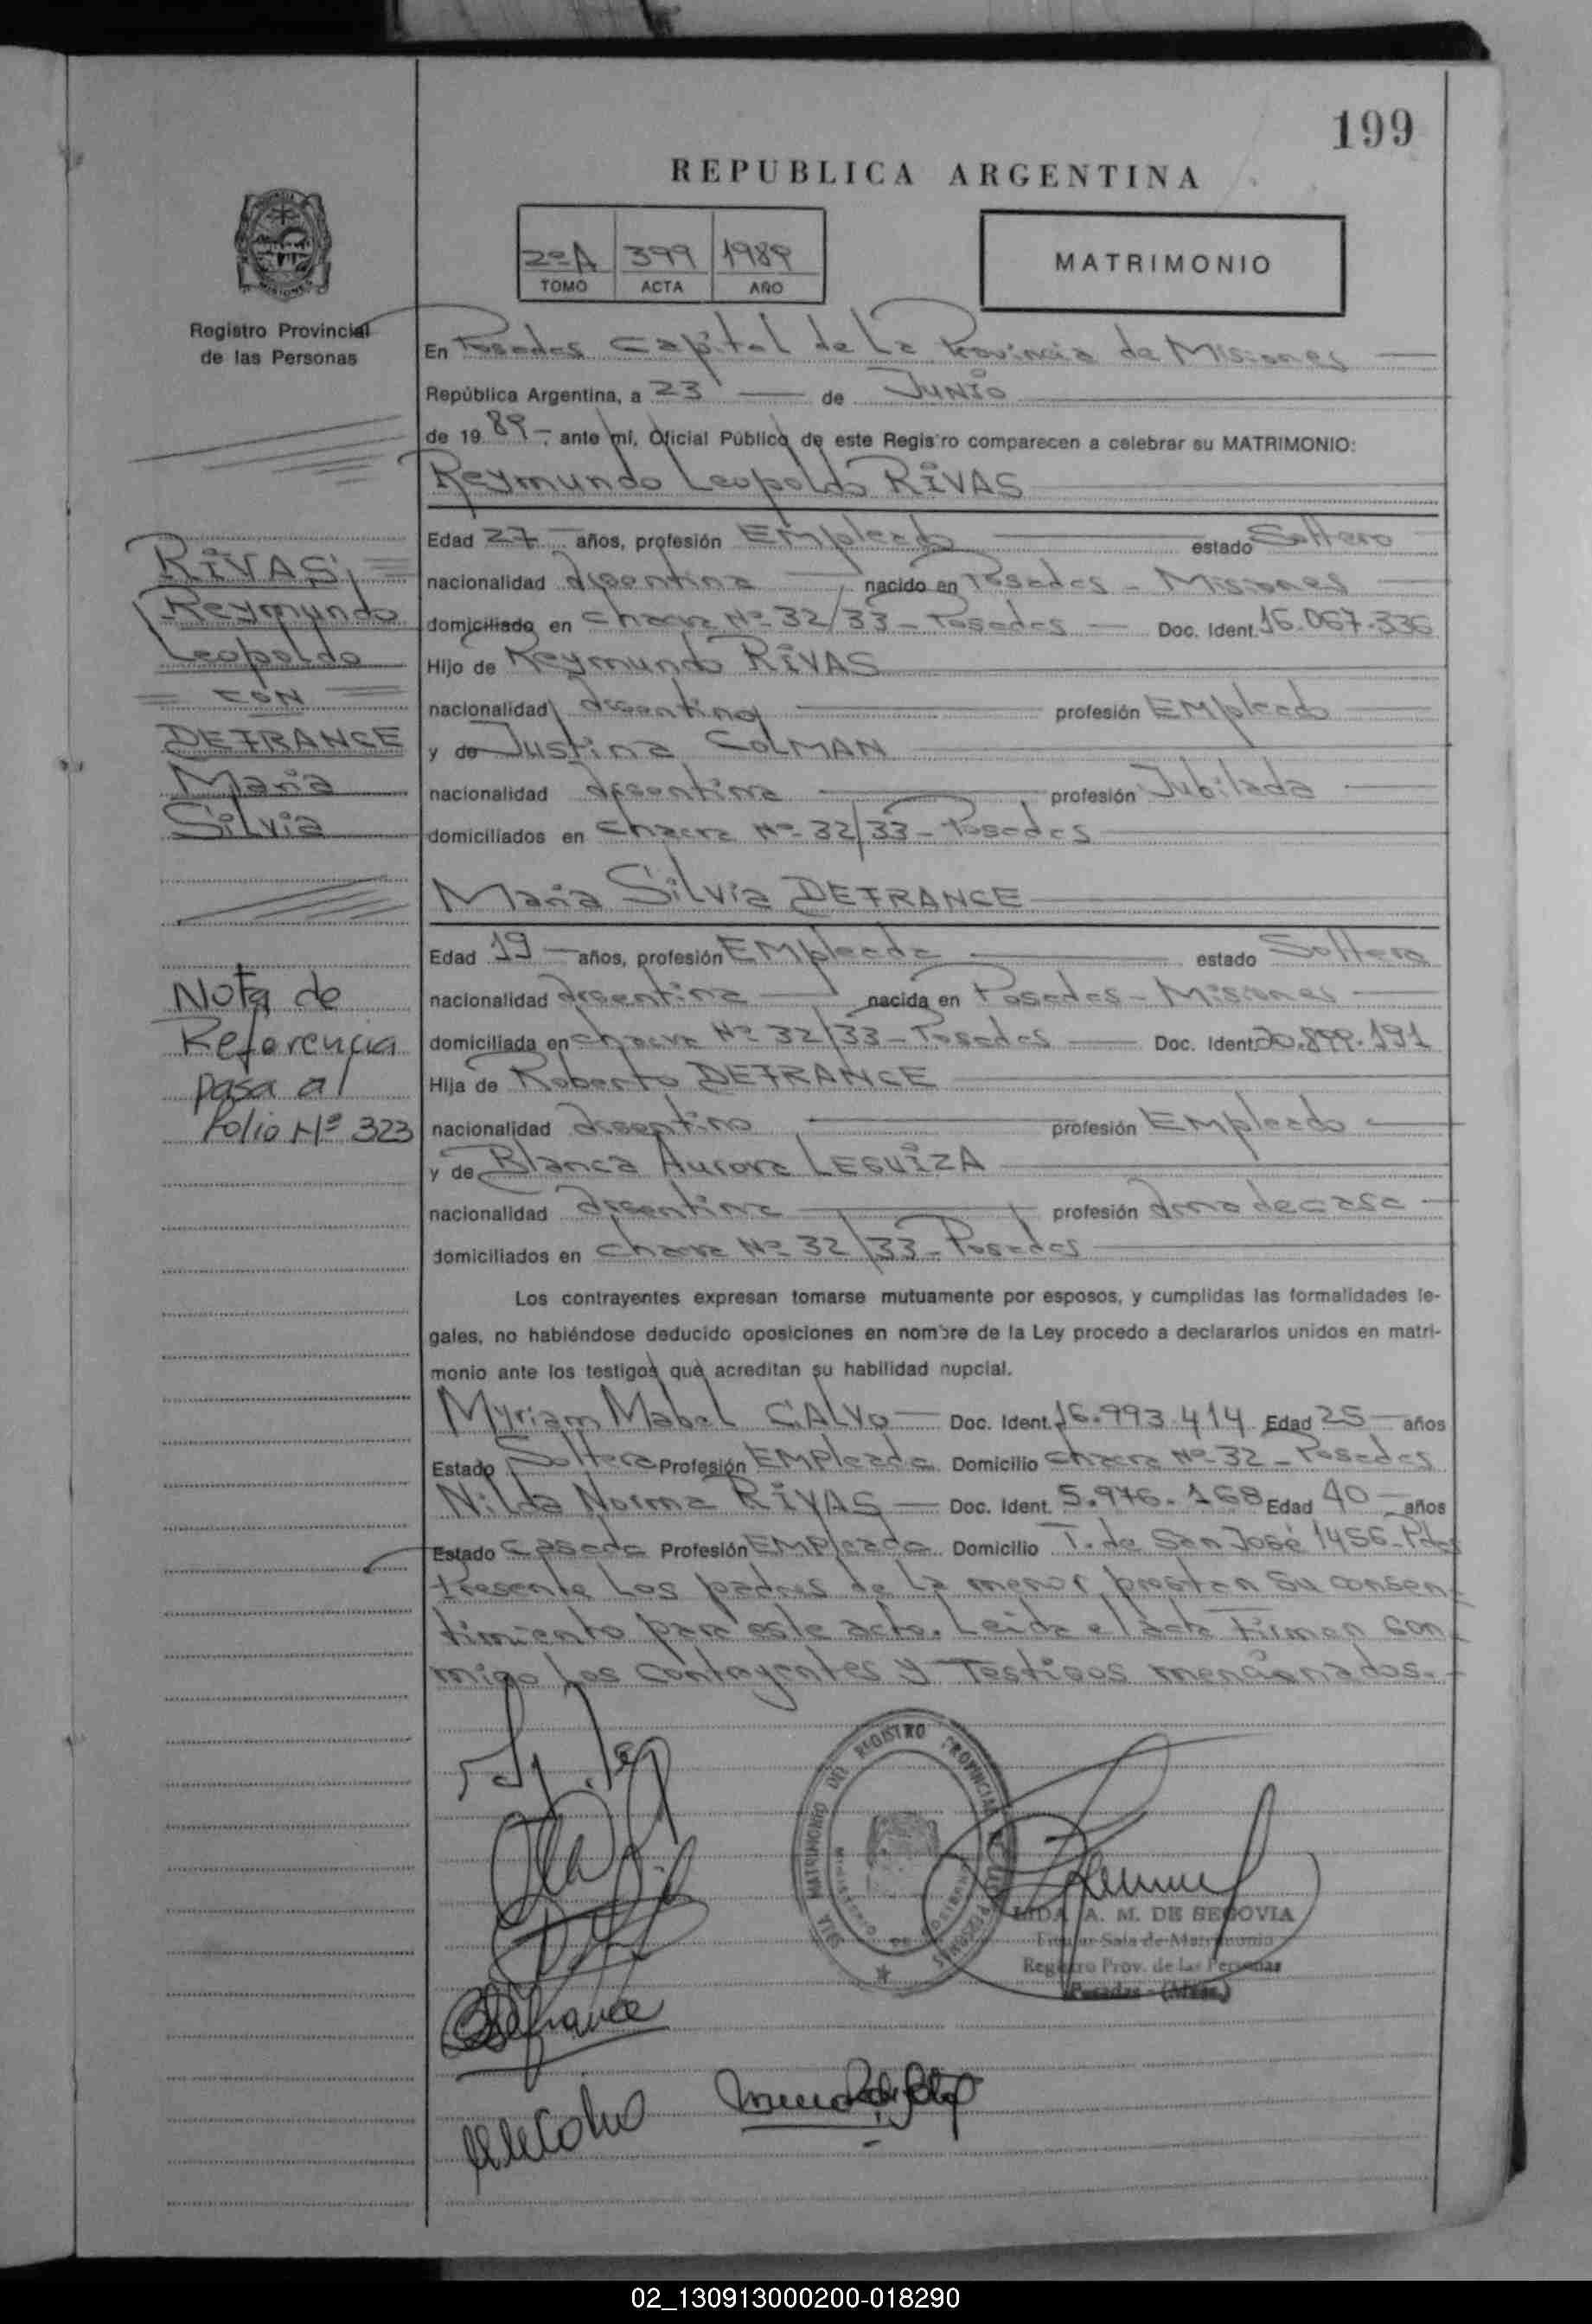 199
REPUBLICA ARGENTINA
2ºA 399 1989
TOMO ACTA AÑO
MATRIMONIO
Registro Provincial
de las Personas
En Posadas Capital de La Provincia de Misiones
República Argentina, a 23 de JUNIO
de 1989, ante mí, Oficial Público de este Registro comparecen a celebrar su MATRIMONIO:
Reymundo Leopoldo RIVAS
Edad 27 años, profesión Empleado estado Soltero
nacionalidad Argentina nacido en Posadas - Misiones
domiciliado en Chacra Nº 32/33 - Posadas Doc. Ident. 16.067.336
Hijo de Reymundo RIVAS
nacionalidad Argentina profesión Empleado
y de Justina COLMAN
nacionalidad Argentina profesión Jubilada
domiciliados en Chacra Nº 32/33 - Posadas
María Silvia DEFRANCE
Edad 19 años, profesión Empleada estado Soltera
nacionalidad Argentina nacida en Posadas - Misiones
domiciliada en Chacra Nº 32/33 - Posadas Doc. Ident. 20.899.191
Hija de Roberto DEFRANCE
nacionalidad Argentino profesión Empleado
y de Blanca Aurora LEGUIZA
nacionalidad Argentina profesión Ama de casa
domiciliados en Chacra Nº 32/33 - Posadas
Los contrayentes expresan tomarse mutuamente por esposos, y cumplidas las formalidades le-
gales, no habiéndose deducido oposiciones en nombre de la Ley procedo a declararlos unidos en matri-
monio ante los testigos que acreditan su habilidad nupcial.
Myriam Mabel CALVO Doc. Ident. 16.993.414 Edad 25 años
Estado Soltera Profesión Empleada Domicilio Chacra Nº 32 - Posadas
Nilda Norma RIVAS Doc. Ident. 5.976.168 Edad 40 años
Estado Casada Profesión Empleada Domicilio T. de San José 1456 - Pdas
Presente Los padres de La menor prestan su consen-
timiento para este acto. Leida el acta Firman con-
migo Los contrayentes y Testigos mencionados.-
RIVAS,
Reymundo
Leopoldo
CON
DEFRANCE
María
Silvia
Nota de
Referencia
pasa al
folio Nº 323
SALA MATRIMONIO DEL REGISTRO PROVINCIAL DE LAS PERSONAS
LIDA A. M. DE SEGOVIA
Titular Sala de Matrimonio
Registro Prov. de las Personas
Posadas - (Mnes.)
02_130913000200-018290